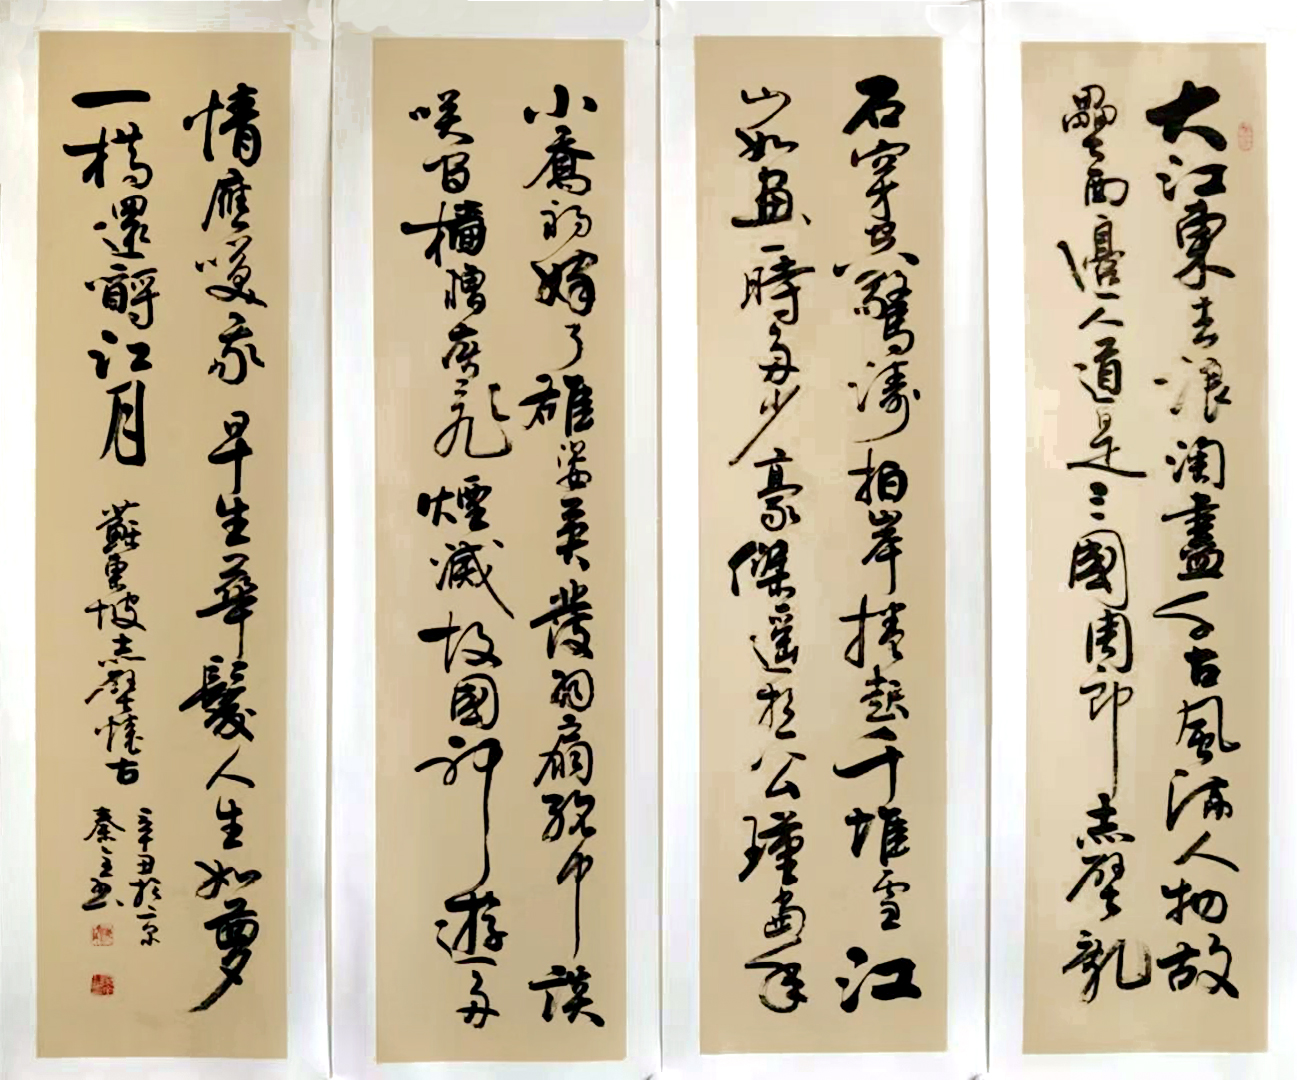 大江東去浪淘盡千古風流人物故
壘西邊人道是三國周郎赤壁亂
石穿空驚濤拍岸捲起千堆雪江
山如畫一時多少豪傑遙想公瑾當年
小喬初嫁了雄姿英發羽扇綸巾談
咲間檣艣灰飛煙滅故國神遊多
情應咲我早生華髮人生如夢
一樽還酹江月 蘇東坡赤壁懷古
辛丑於京
秦立书